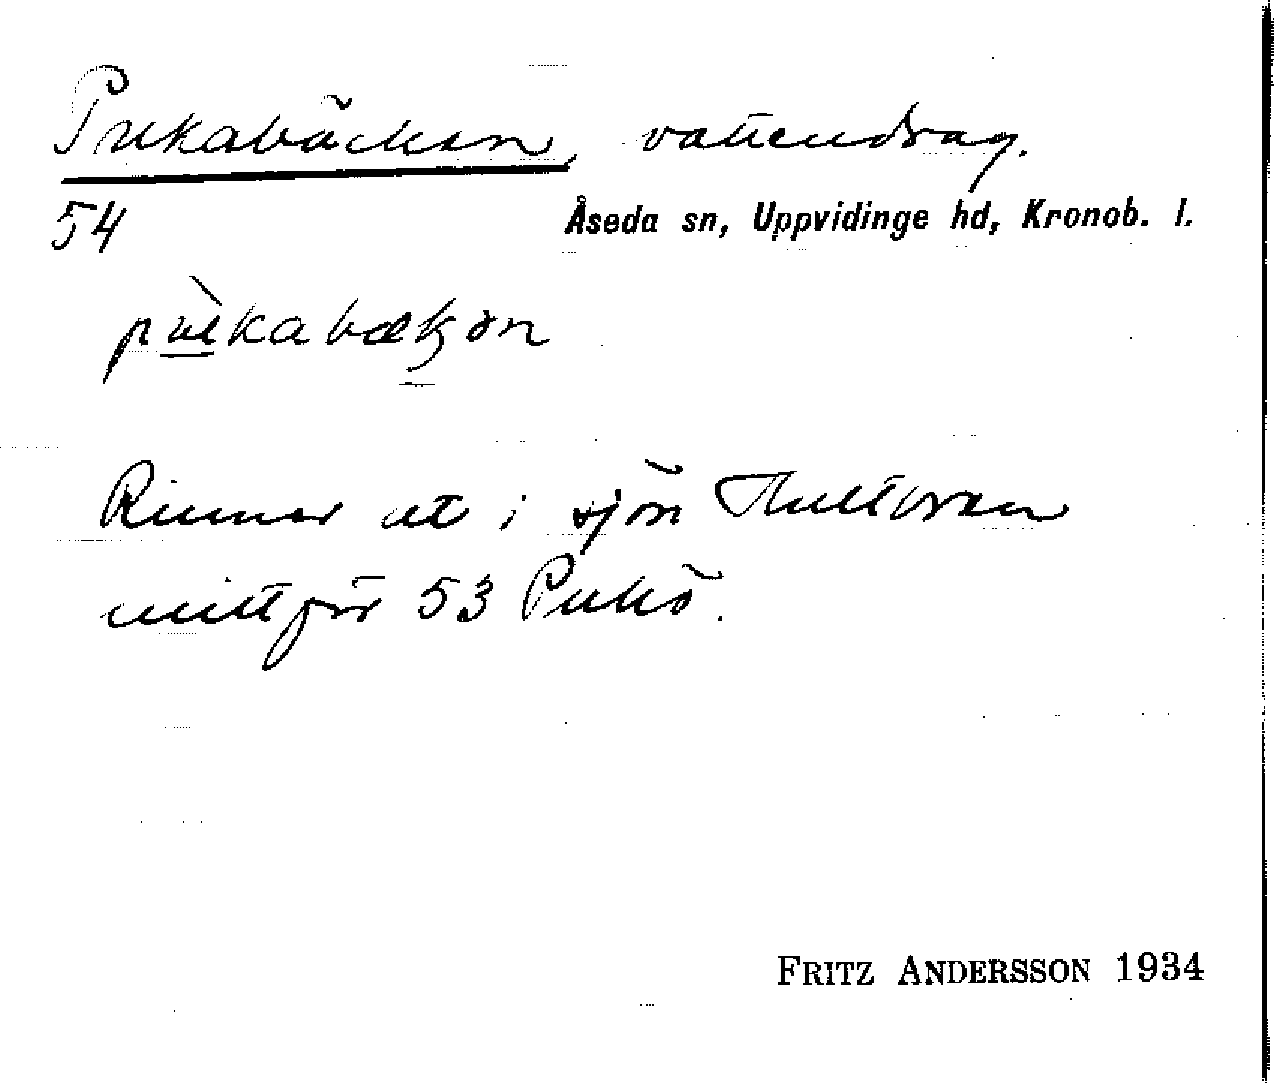 Pukabäcken, vattendrag.
54
Åseda sn, Uppvidinge hd, Kronob. l.
pùkabækʒən
Rinner ut i sjön Hultbren
mitt för 53 Pukö.
FRITZ ANDERSSON 1934